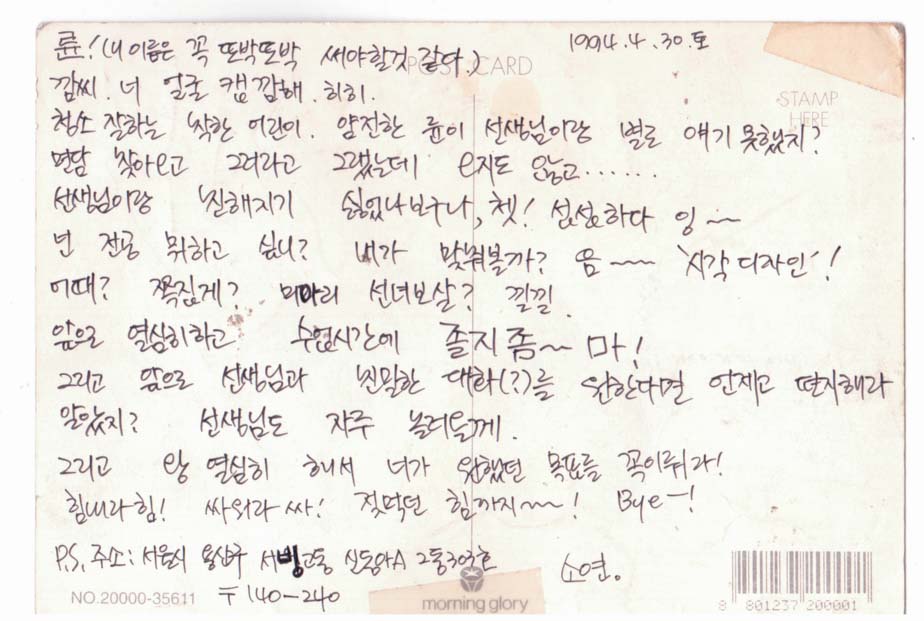 륜! (네 이름은 꼭 또박또박 써야할것 같다.) 1994.4.30.토
POST CARD
깜찍. 너 얼굴 캡 깜해. 히히.
STAMP
HERE
청소 잘하는 착한 어린이. 얌전한 륜이 선생님이랑 별로 얘기 못했지?
면담 찾아오고 그러라고 그랬는데 오지도 않고......
선생님이랑 친해지기 싫었나보구나, 쳇! 섭섭하다 잉~~
넌 전공 뭐하고 싶니? 내가 맞춰볼까? 음~~~ '시각 디자인'!
어때? 쪽집게? 미아리 선녀보살? 낄낄.
앞으로 열심히하고 수업시간에 졸지좀~~ 마!
그리고 앞으로 선생님과 친밀한 대화(?)를 원한다면 언제고 편지해라
알았지? 선생님도 자주 놀려둘께.
그리고 왕 열심히 해서 너가 원했던 목표를 꼭이뤄라!
힘내라힘! 싸워라싸! 젖먹던 힘까지~~~! Bye-!
P.S. 주소: 서울시 용산구 서빙고동 신동아A 2동303호 소연.
NO.20000-35611 〒140-240
morning glory
8 801237 200001